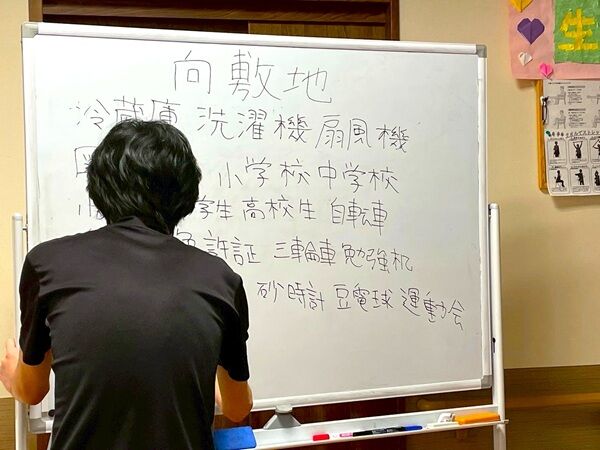 向敷地
冷蔵庫 洗濯機 扇風機
小学校 中学校
学生 高校生 自転車
許証 三輪車 勉強机
砂時計 豆電球 運動会
生